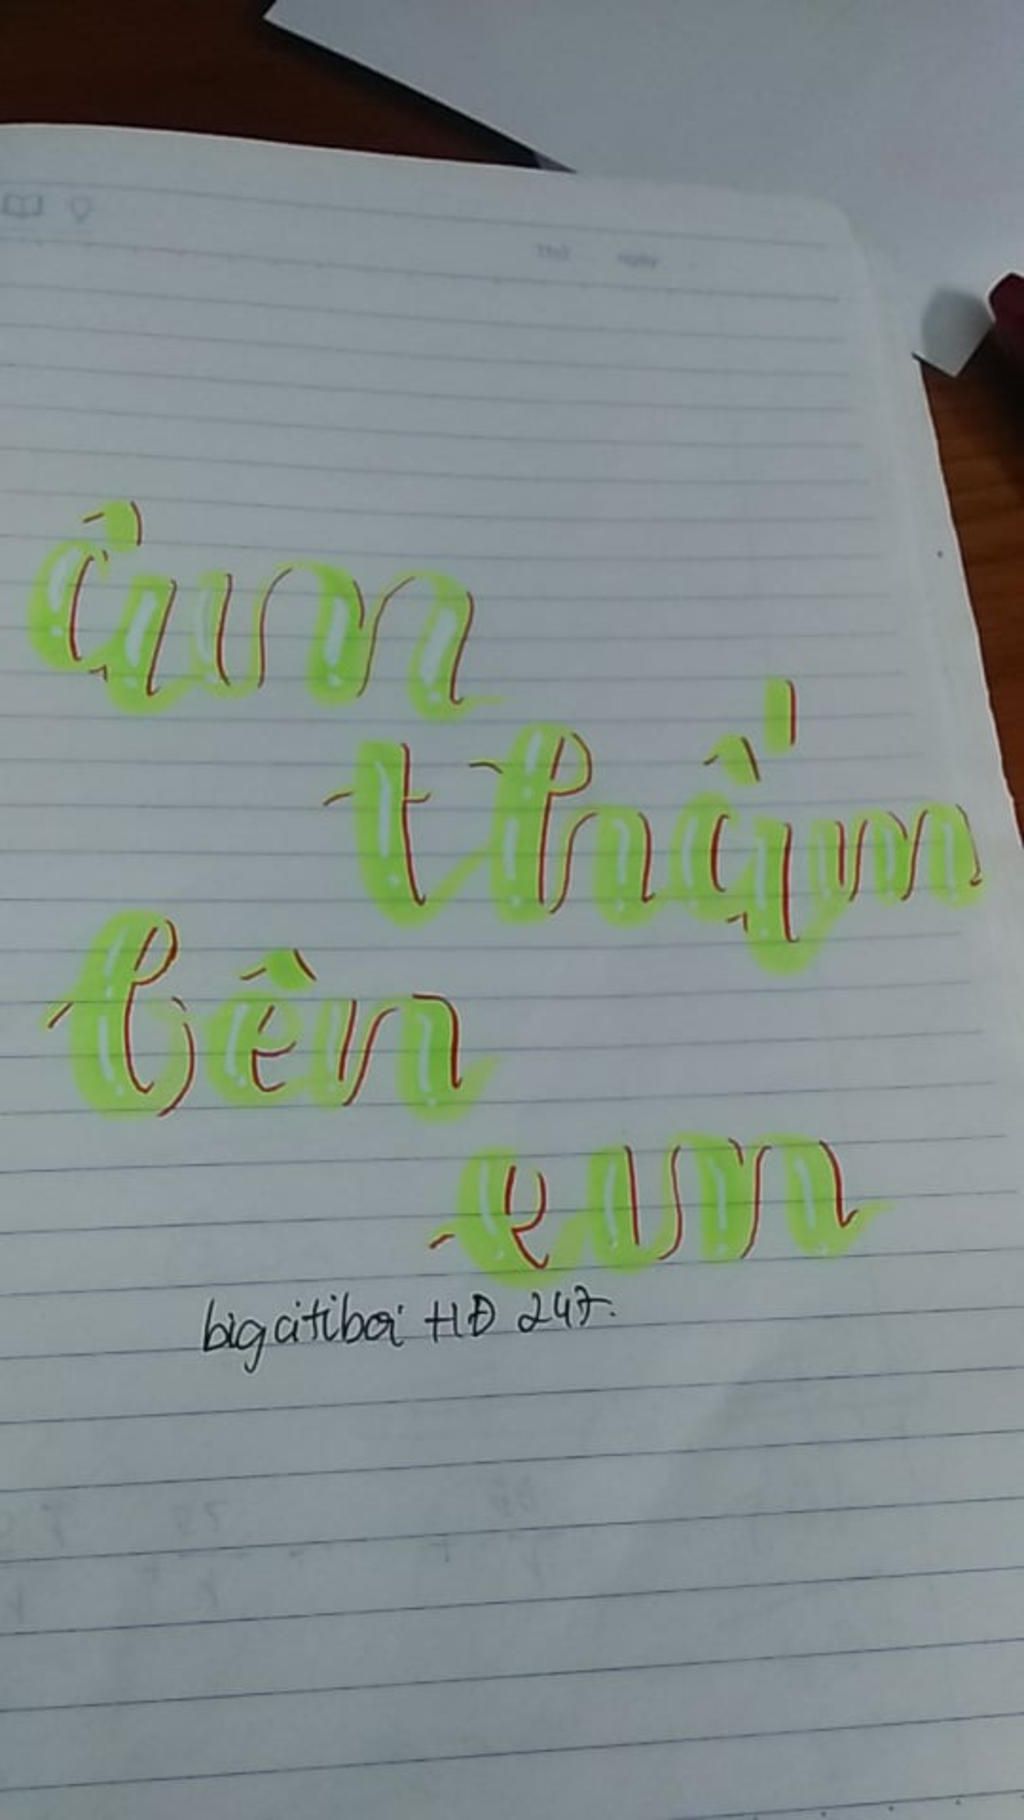 âm
thấm
bên
em
bigcitiboi HĐ 247.